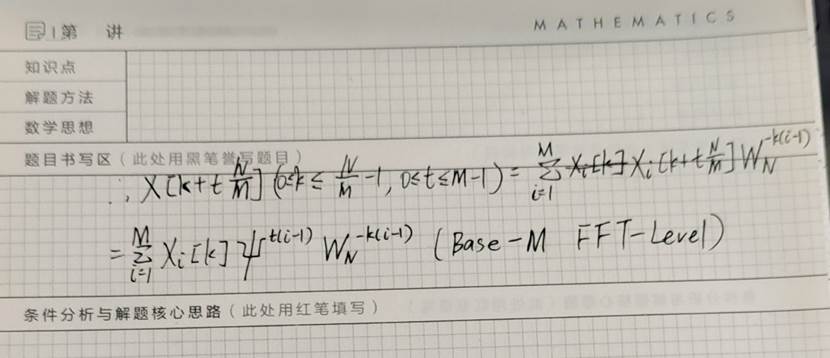 第 讲 MATHEMATICS
知识点
解题方法
数学思想
题目书写区（此处用黑笔誊写题目）
∴ X[k+t N/M] (0≤k≤ N/M -1, 0≤t≤M-1) = ∑_{i=1}^{M} X_i[k+t N/M] W_N^{-k(i-1)}
= ∑_{i=1}^{M} X_i[k] ψ^{t(i-1)} W_N^{-k(i-1)} (Base-M FFT-Level)
条件分析与解题核心思路（此处用红笔填写）